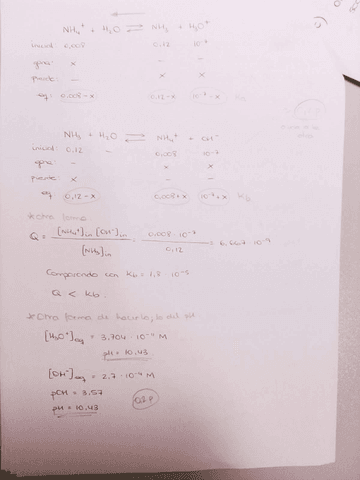 NH₄⁺ + H₂O ⇌ NH₃ + H₃O⁺
inicial: 0,008 0,12 10⁻⁷
gana: x - -
pierde: - x x
eq: 0,008-x 0,12-x 10⁻⁷-x
NH₃ + H₂O ⇌ NH₄⁺ + OH⁻
inicial: 0,12 - 0,008 10⁻⁷
gana: - x x
pierde: x - -
eq 0,12-x 0,008+x 10⁻⁷+x Kb
*Otra forma
Q = [NH₄⁺]in [OH⁻]in / [NH₃]in = 0,008 · 10⁻⁷ / 0,12 = 6,667 · 10⁻⁹
Comparando con Kb = 1,8 · 10⁻⁵
Q < Kb.
*Otra forma de hacerlo, lo del pH.
[H₃O⁺]eq = 3,704 · 10⁻¹¹ M
pH = 10,43
[OH⁻]eq = 2,7 · 10⁻⁴ M
pOH = 3,57
pH = 10,43